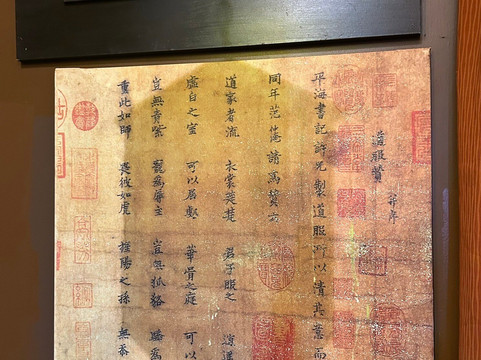 道服贊 并序
平海書記許兄製道服所以清其意而
同年范仲淹請為贊云
道家者流 衣裳楚楚 君子服之 逍遙
虛白之室 可以居處 華胥之庭 可以
豈無青紫 寵為辱主 豈無狐貉 驕為
重此如師 畏彼如虎 旌陽之孫 無忝